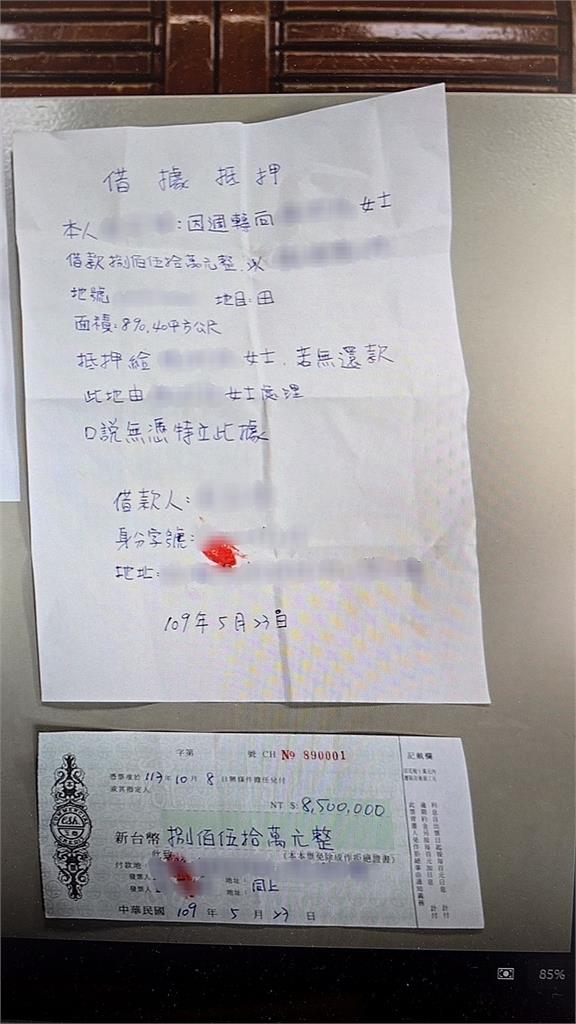 借據抵押
本人 :因週轉向 女士
借款捌佰伍拾萬元整.以
地號 地目:田
面積:890.40平方公尺
抵押給 女士.若無還款
此地由 女士處理
口說無憑特立此據
借款人:
身分字號:
地址:
109年5月23日
字第 號 CH No 890001
憑票准於113年10月8日無條件擔任兌付
或其指定人
NT $:8,500,000
新台幣捌佰伍拾萬元整
此致 (本本票免除成作拒絕證書)
付款地:
發票人: 地址:
發票人: 地址: 同上
中華民國 109 年 5 月 23 日
記載欄
85%